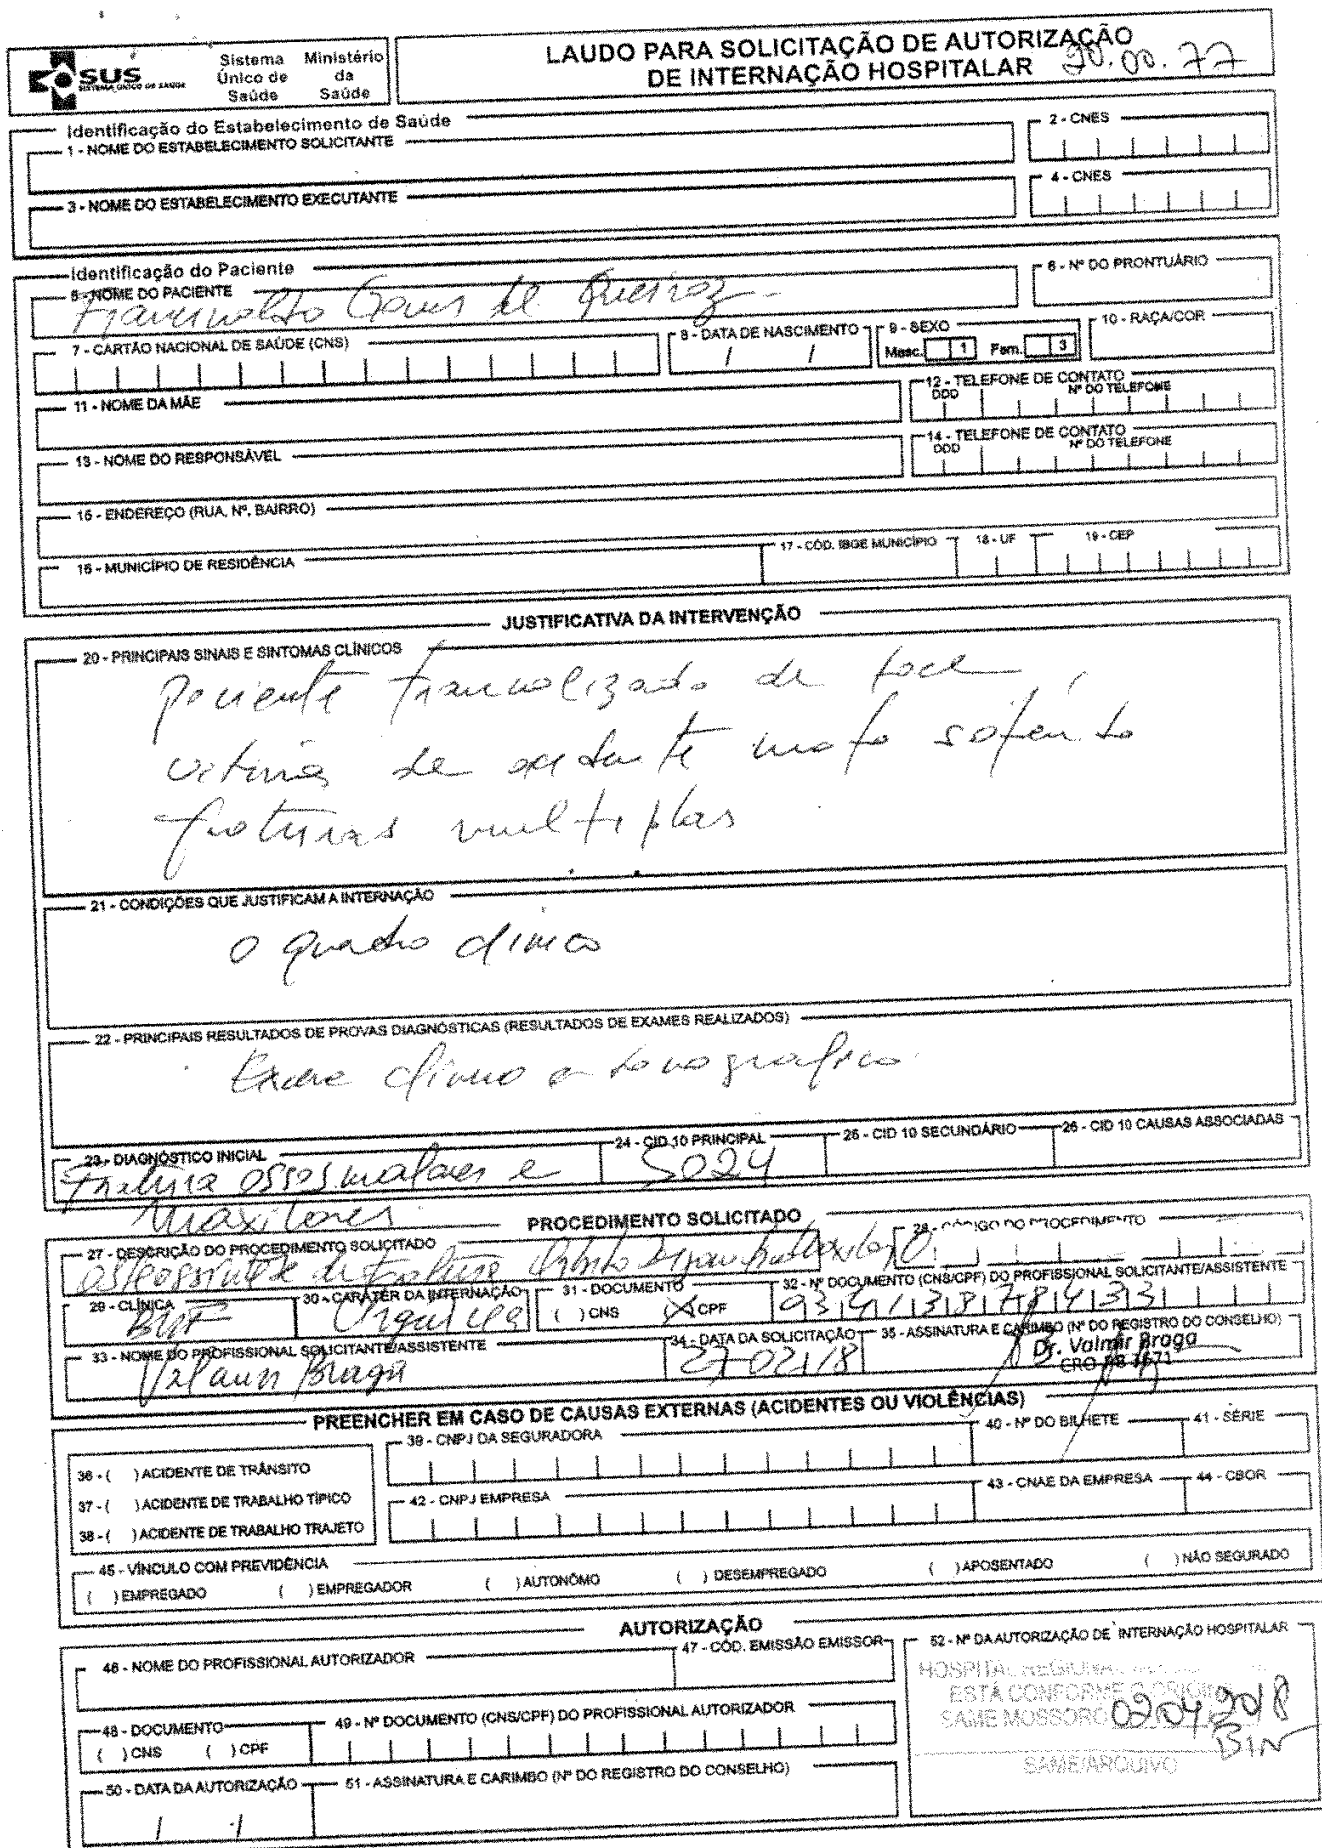 SUS
SISTEMA ÚNICO DE SAÚDE
Sistema Único de Saúde
Ministério da Saúde
LAUDO PARA SOLICITAÇÃO DE AUTORIZAÇÃO
DE INTERNAÇÃO HOSPITALAR
Identificação do Estabelecimento de Saúde
1 - NOME DO ESTABELECIMENTO SOLICITANTE
2 - CNES
3 - NOME DO ESTABELECIMENTO EXECUTANTE
4 - CNES
Identificação do Paciente
5 - NOME DO PACIENTE
6 - Nº DO PRONTUÁRIO
de Queiroz
7 - CARTÃO NACIONAL DE SAÚDE (CNS)
8 - DATA DE NASCIMENTO
/ /
9 - SEXO
Masc. 1 Fem. 3
10 - RAÇA/COR
11 - NOME DA MÃE
12 - TELEFONE DE CONTATO
DDD Nº DO TELEFONE
13 - NOME DO RESPONSÁVEL
14 - TELEFONE DE CONTATO
DDD Nº DO TELEFONE
15 - ENDEREÇO (RUA, Nº, BAIRRO)
16 - MUNICÍPIO DE RESIDÊNCIA
17 - CÓD. IBGE MUNICÍPIO
18 - UF
19 - CEP
JUSTIFICATIVA DA INTERVENÇÃO
20 - PRINCIPAIS SINAIS E SINTOMAS CLÍNICOS
paciente de face,
vitima de moto
fraturas multiplas
21 - CONDIÇÕES QUE JUSTIFICAM A INTERNAÇÃO
o quadro clinico
22 - PRINCIPAIS RESULTADOS DE PROVAS DIAGNÓSTICAS (RESULTADOS DE EXAMES REALIZADOS)
Exame clinico e tomografico
23 - DIAGNÓSTICO INICIAL
24 - CID 10 PRINCIPAL
25 - CID 10 SECUNDÁRIO
26 - CID 10 CAUSAS ASSOCIADAS
Fratura ossos malares e
S024
maxilares
PROCEDIMENTO SOLICITADO
27 - DESCRIÇÃO DO PROCEDIMENTO SOLICITADO
28 - CÓDIGO DO PROCEDIMENTO
osteossintese de fratura
29 - CLÍNICA
BMF
30 - CARÁTER DA INTERNAÇÃO
Urgencia
31 - DOCUMENTO
( ) CNS (X) CPF
32 - Nº DOCUMENTO (CNS/CPF) DO PROFISSIONAL SOLICITANTE/ASSISTENTE
93413878433
33 - NOME DO PROFISSIONAL SOLICITANTE/ASSISTENTE
Valmir Braga
34 - DATA DA SOLICITAÇÃO
27-02/18
35 - ASSINATURA E CARIMBO (Nº DO REGISTRO DO CONSELHO)
Dr. Valmir Braga
PREENCHER EM CASO DE CAUSAS EXTERNAS (ACIDENTES OU VIOLÊNCIAS)
36 - ( ) ACIDENTE DE TRÂNSITO
37 - ( ) ACIDENTE DE TRABALHO TÍPICO
38 - ( ) ACIDENTE DE TRABALHO TRAJETO
39 - CNPJ DA SEGURADORA
40 - Nº DO BILHETE
41 - SÉRIE
42 - CNPJ EMPRESA
43 - CNAE DA EMPRESA
44 - CBOR
45 - VÍNCULO COM PREVIDÊNCIA
( ) EMPREGADO ( ) EMPREGADOR ( ) AUTONÔMO ( ) DESEMPREGADO ( ) APOSENTADO ( ) NÃO SEGURADO
AUTORIZAÇÃO
46 - NOME DO PROFISSIONAL AUTORIZADOR
47 - CÓD. EMISSÃO EMISSOR
52 - Nº DA AUTORIZAÇÃO DE INTERNAÇÃO HOSPITALAR
HOSPITAL REGIONAL
ESTÁ CONFORME O ORIGINAL
SAME MOSSORÓ 02 04 2018
SAME/ARQUIVO
48 - DOCUMENTO
( ) CNS ( ) CPF
49 - Nº DOCUMENTO (CNS/CPF) DO PROFISSIONAL AUTORIZADOR
50 - DATA DA AUTORIZAÇÃO
/ /
51 - ASSINATURA E CARIMBO (Nº DO REGISTRO DO CONSELHO)